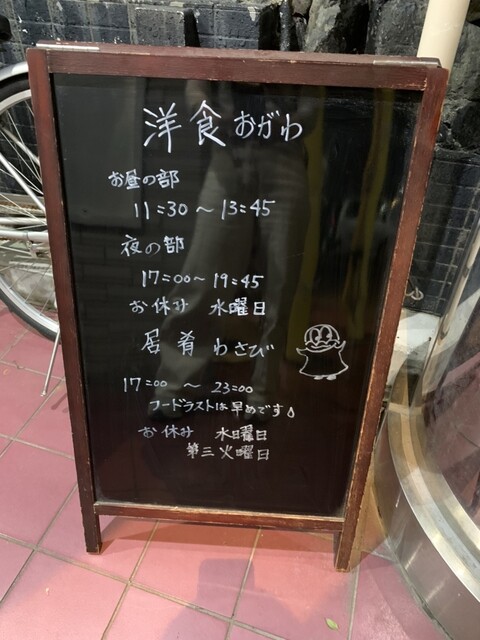 洋食 おがわ
お昼の部
11:30 〜 13:45
夜の部
17:00〜 19:45
お休み 水曜日
居肴 わさび
17:00 〜 23:00
フードラストは早めです
お休み 水日曜日
第三火曜日